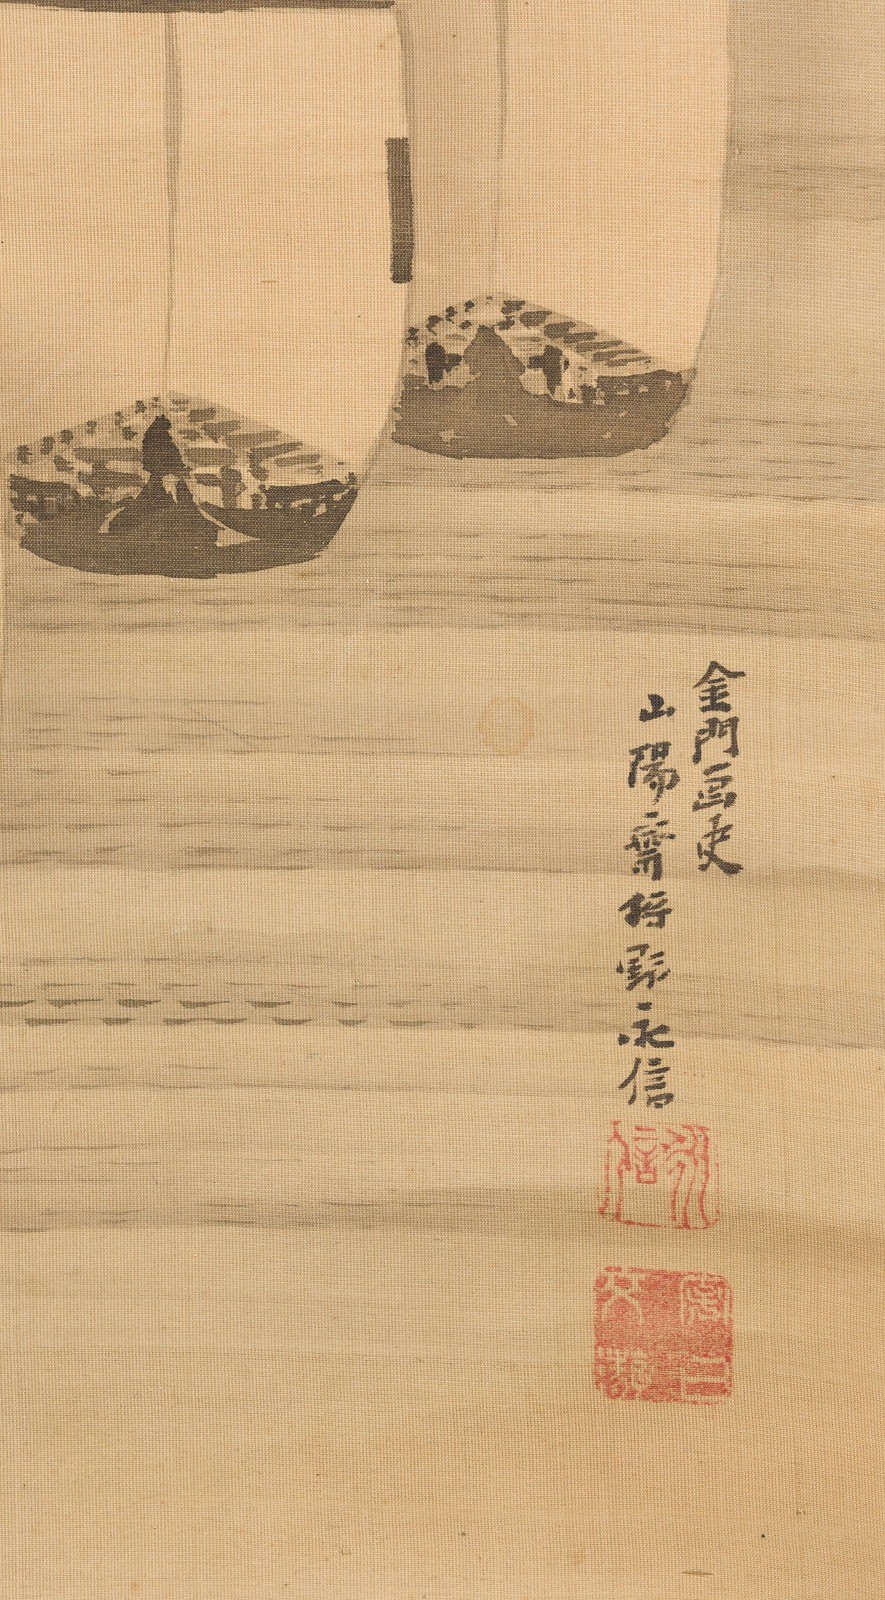 金門画史
山陽齋狩野永信
永信